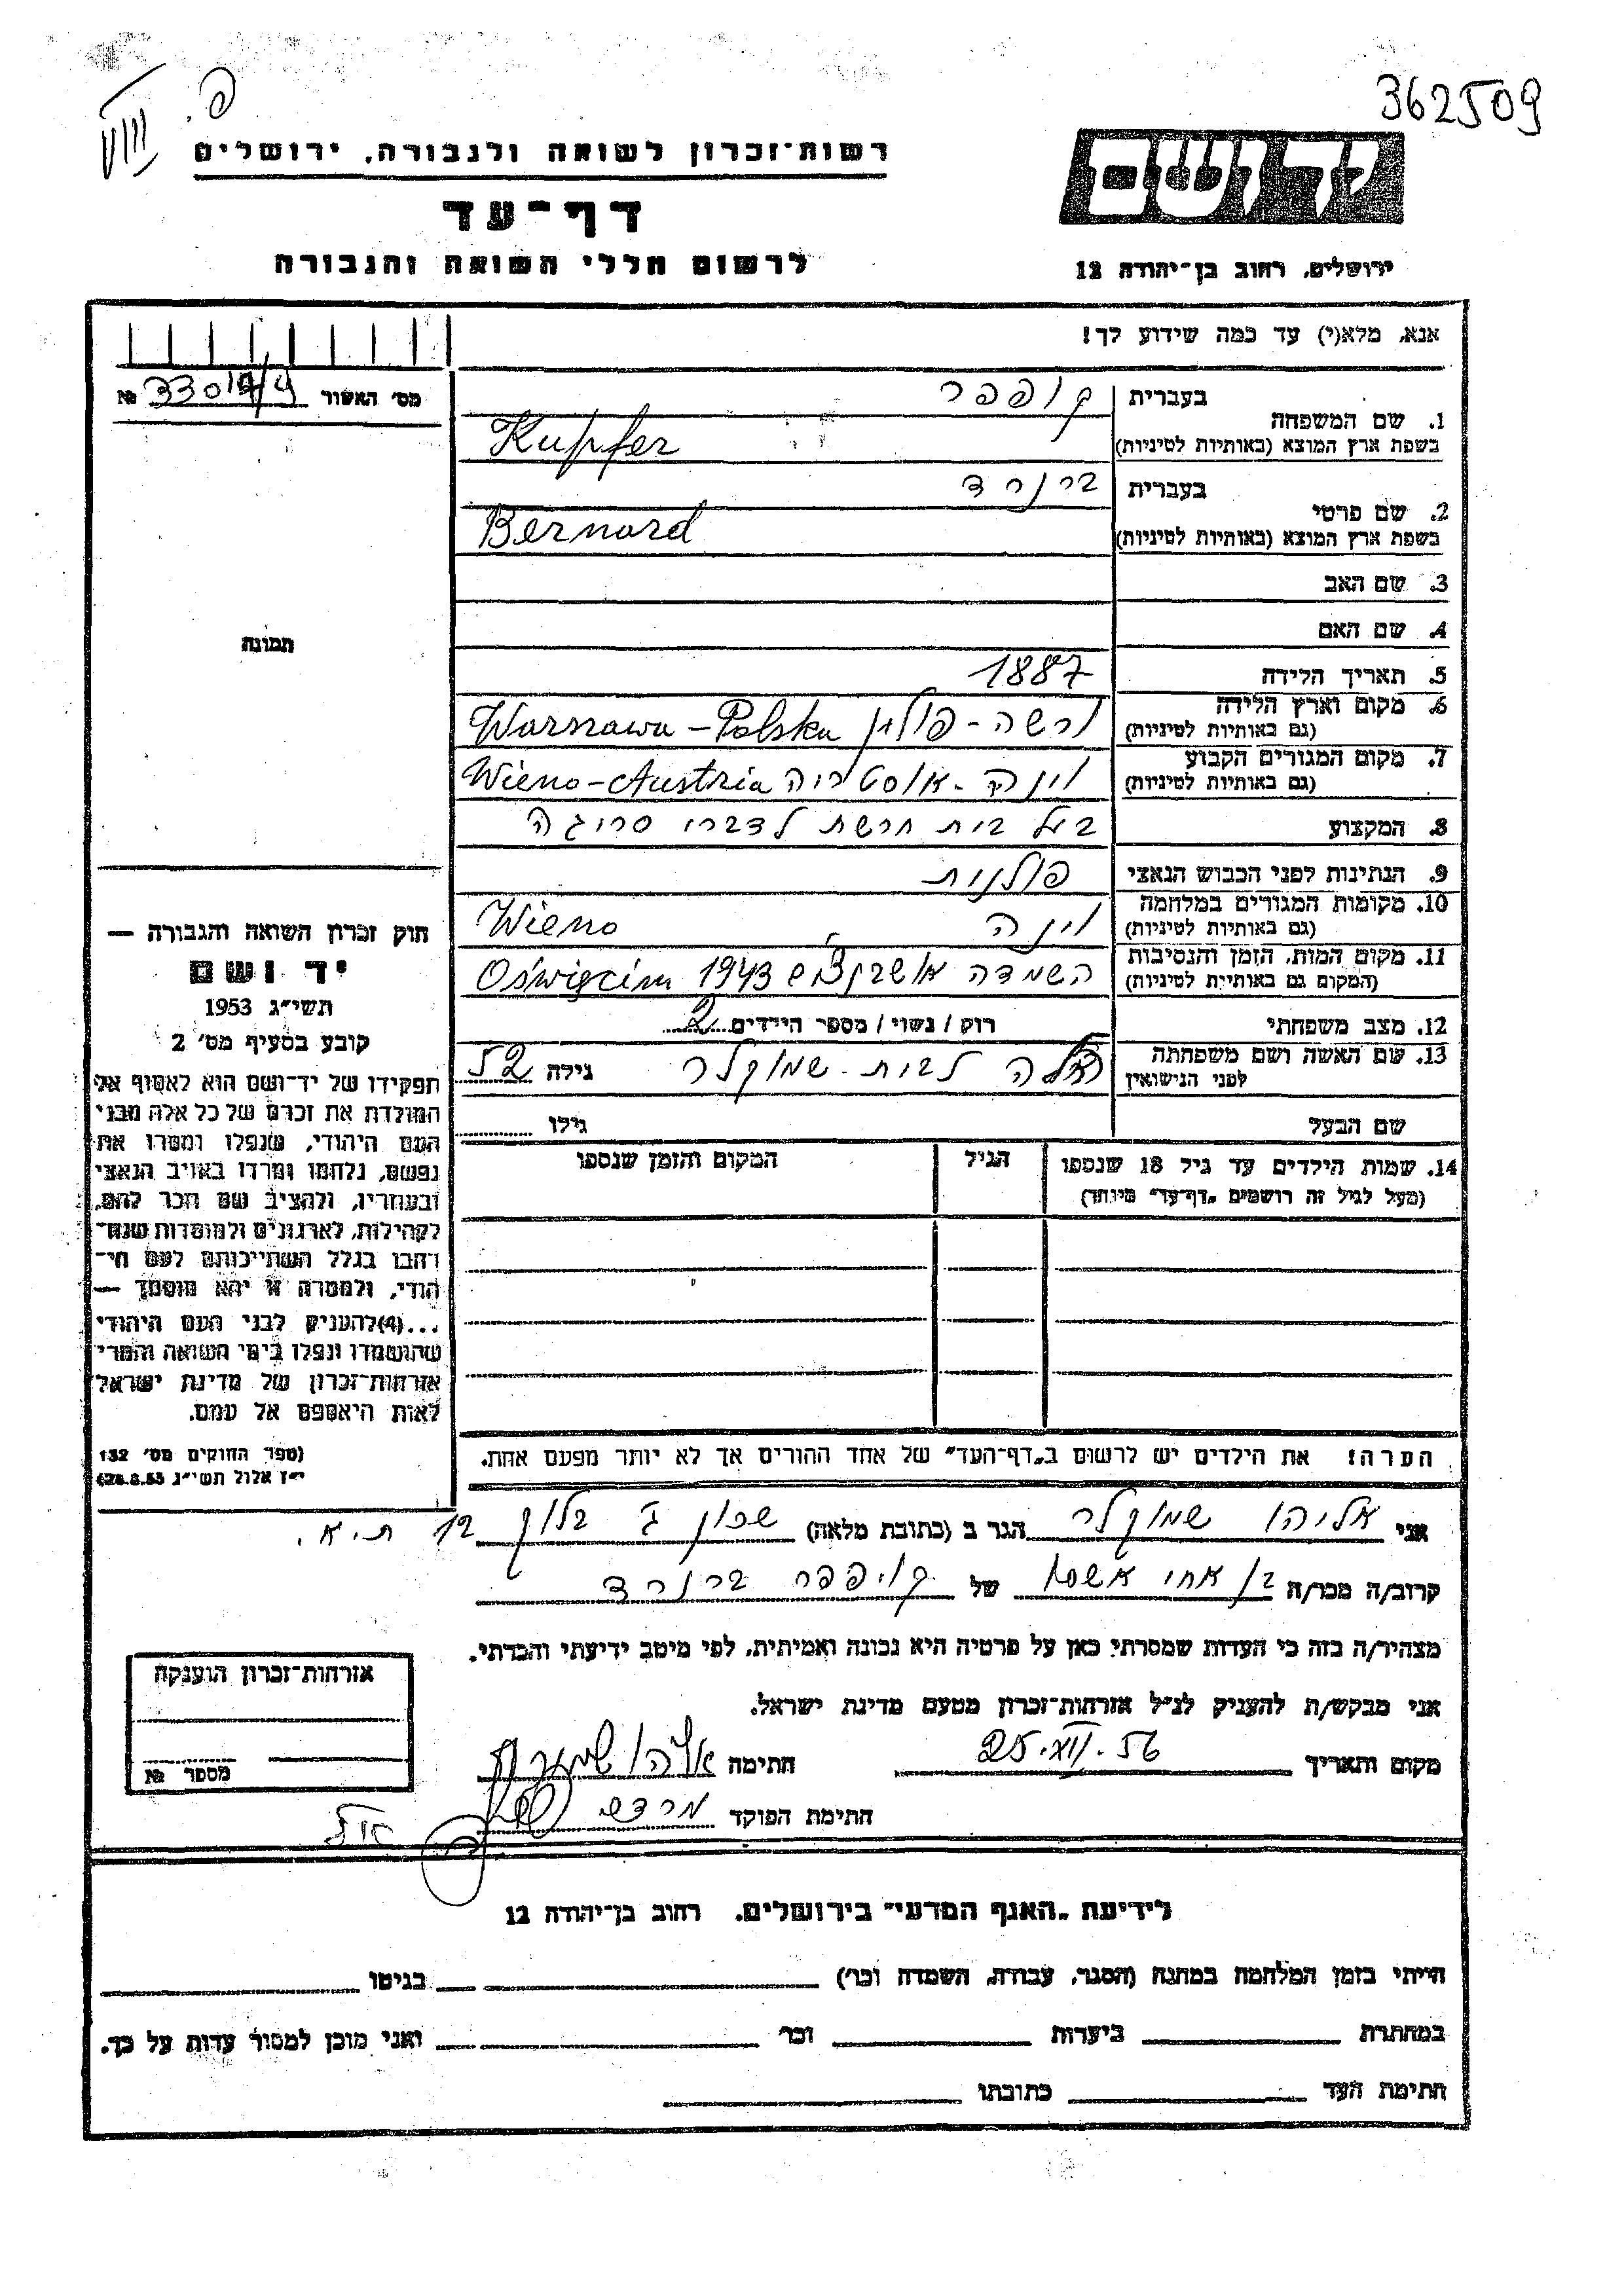 362509
פ.
רשות־זכרון לשואה ולגבורה, ירושלים
דף־עד
לרשום חללי השואה והגבורה
יד ושם
ירושלים, רחוב בן־יהודה 12
אנא, מלא(י) עד כמה שידוע לך!
מס׳ האשור № 33019/4
1. שם המשפחה בעברית קופפר
בשפת ארץ המוצא (באותיות לטיניות) Kupfer
2. שם פרטי בעברית ברנרד
בשפת ארץ המוצא (באותיות לטיניות) Bernard
3. שם האב
4. שם האם
תמונה
5. תאריך הלידה 1887
6. מקום וארץ הלידה
(גם באותיות לטיניות) ורשה - פולין Warszawa - Polska
7. מקום המגורים הקבוע
(גם באותיות לטיניות) וינה - אוסטריה Wieno - Austria
8. המקצוע בעל בית חרשת לדברי סריגה
9. הנתינות לפני הכבוש הנאצי פולנית
10. מקומות המגורים במלחמה
(גם באותיות לטיניות) וינה Wieno
11. מקום המות, הזמן והנסיבות
(המקום גם באותיות לטיניות) השמדה אושבנצים Oświęcim 1943
12. מצב משפחתי רוק / נשוי / מספר הילדים 2
13. שם האשה ושם משפחתה
לפני הנישואין לבית - שמוקלר גילה 52
שם הבעל גילו
14. שמות הילדים עד גיל 18 שנספו הגיל המקום והזמן שנספו
(מעל לגיל זה רושמים „דף־עד״ מיוחד)
חוק זכרון השואה והגבורה —
יד ושם
תשי״ג 1953
קובע בסעיף מס׳ 2
תפקידו של יד־ושם הוא לאסוף אל
המולדת את זכרם של כל אלה מבני
העם היהודי, שנפלו ומסרו את
נפשם, נלחמו ומרדו באויב הנאצי
ובעוזריו, ולהציב שם וזכר להם,
לקהילות, לארגונים ולמוסדות שנח־
רבו בגלל השתייכותם לעם הי־
הודי, ולמטרה זו יהא מוסמך —
...(4) להעניק לבני העם היהודי
שהושמדו ונפלו בימי השואה והמרי
אזרחות־זכרון של מדינת ישראל
לאות היאספם אל עמם.
(ספר החוקים מס׳ 132
י״ז אלול תשי״ג 28.8.53)
הערה! את הילדים יש לרשום ב„דף־העד״ של אחד ההורים אך לא יותר מפעם אחת.
אני אליהו שמוקלר הגר ב (כתובת מלאה) שכון ג׳ בלוק 12 ת.א.
קרוב/ה מכר/ה בן אחי אשתו של קופפר ברנרד
מצהיר/ה בזה כי העדות שמסרתי כאן על פרטיה היא נכונה ואמיתית, לפי מיטב ידיעתי והכרתי.
אני מבקש/ת להעניק לנ״ל אזרחות־זכרון מטעם מדינת ישראל.
מקום ותאריך 25.XII.56 חתימה אליהו שמוקלר
חתימת הפוקד מרדכי
אזרחות־זכרון הוענקה
מספר №
לידיעת „האגף המדעי״ בירושלים, רחוב בן־יהודה 12
הייתי בזמן המלחמה במחנה (הסגר, עבודה, השמדה וכר׳) בגיטו
במחתרת ביערות וכר׳ ואני מוכן למסור עדות על כך.
חתימת העד כתובתו